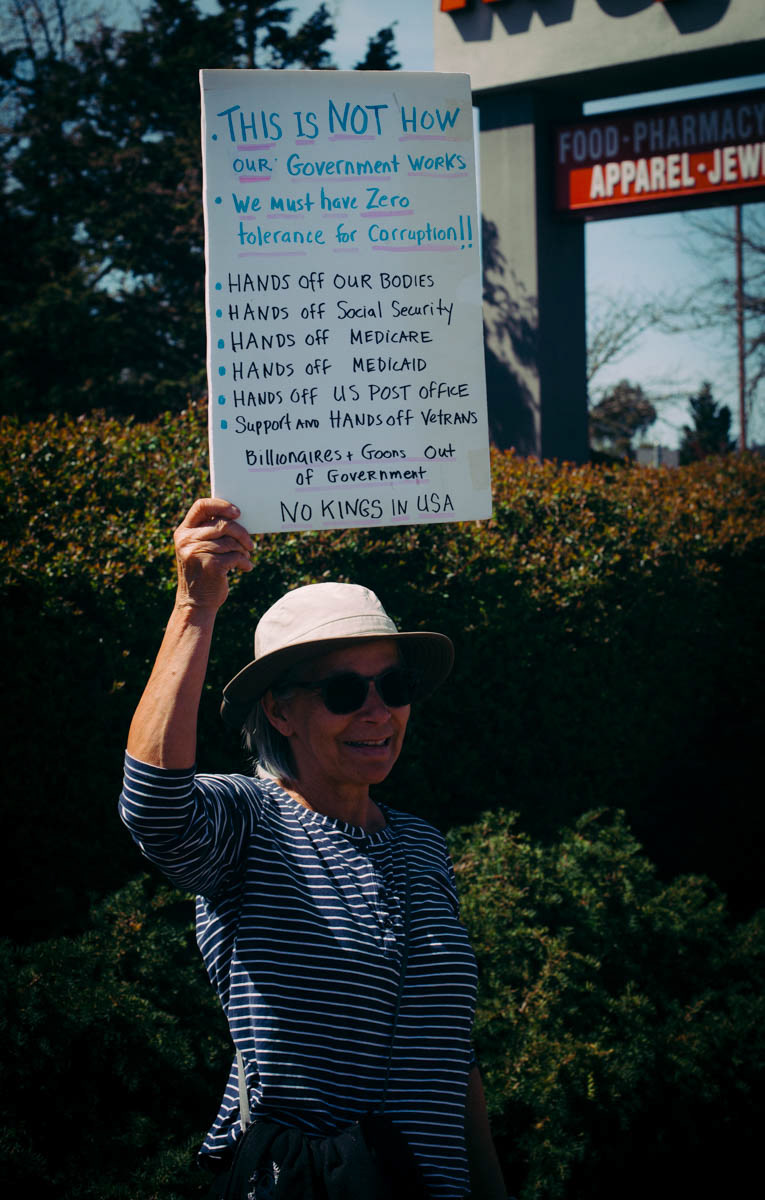 . THIS IS NOT HOW
OUR Government WORKS
• We must have Zero
tolerance for Corruption!!
• HANDS off OUR BODIES
• HANDS off Social Security
• HANDS off MEDICARE
• HANDS off MEDICAID
• HANDS OFF US POST OFFICE
• Support AND HANDS off VETRANS
Billionaires + Goons Out
of Government
NO KINGS IN USA
FOOD · PHARMACY
APPAREL · JEW